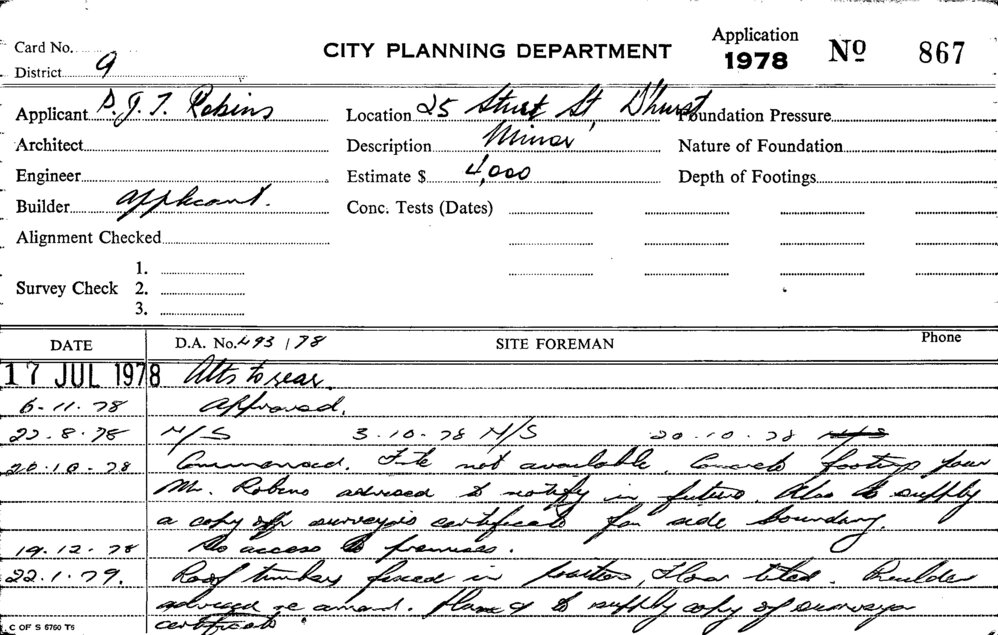 Card No.
CITY PLANNING DEPARTMENT
Application 1978 No 867
District 9
Applicant P. J. T. Robins Location 25 Sturt St, D'hurst Foundation Pressure
Architect Description Minor Nature of Foundation
Engineer Estimate $ 4,000 Depth of Footings
Builder applicant. Conc. Tests (Dates)
Alignment Checked
1.
Survey Check 2.
3.
DATE D.A. No. 493/78 SITE FOREMAN Phone
17 JUL 1978 Alts to rear.
6-11.78 Approved.
22.8.78 N/S 3-10-78 N/S 20.10.78 N/S
20.10.78 Commenced. not available. Concrete footings
Mr. Robins advised to notify in future. Also to supply
a copy of surveyors certificate for side boundary.
19.12.78 No access to premises.
22.1.79. Roof timbers in position, Floor tiled. Builder
advised re amend. Plans & to supply copy of surveyor
certificate.
C OF S 5760 T5